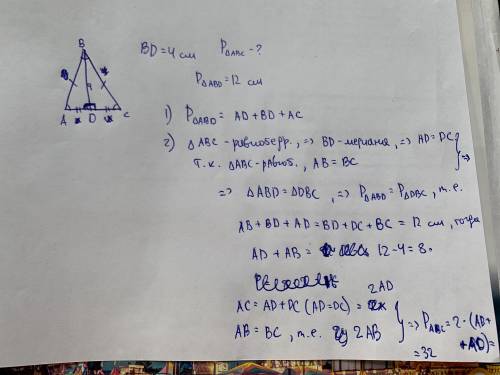 B
4
A D C
BD = 4 см P△ABC - ?
P△ABD = 12 см
1) P△ABD = AD + BD + AC
2) △ABC - равнобедр., => BD - медиана, => AD = DC
Т.к. △ABC - равноб., AB = BC } =>
=> △ABD = △DBC, => P△ABD = P△DBC, т.е.
AB + BD + AD = BD + DC + BC = 12 см, тогда
AD + AB = 12 - 4 = 8.
AC = AD + DC (AD = DC) = 2AD
AB = BC, т.е. 2AB } => P△ABC = 2 · (AD +
+ AD) =
= 32